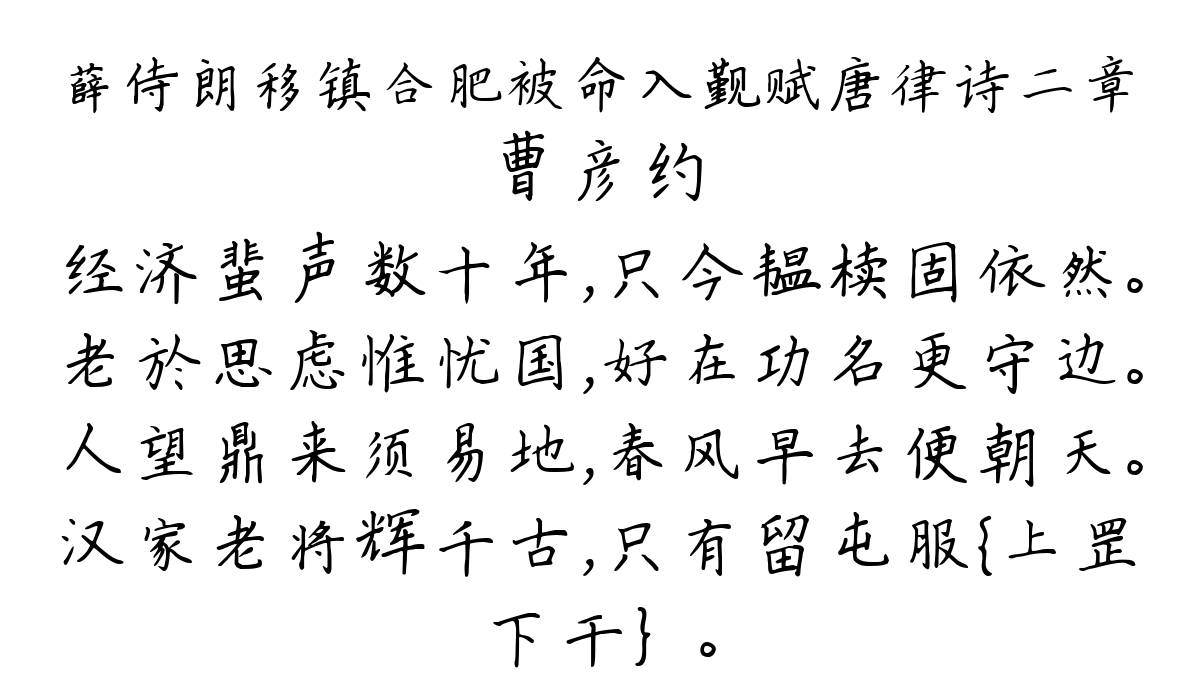 薛侍朗移镇合肥被命入觐赋唐律诗二章
曹彦约
经济蜚声数十年,只今韫椟固依然。
老於思虑惟忧国,好在功名更守边。
人望鼎来须易地,春风早去便朝天。
汉家老将辉千古,只有留屯服{上罡
下干}。